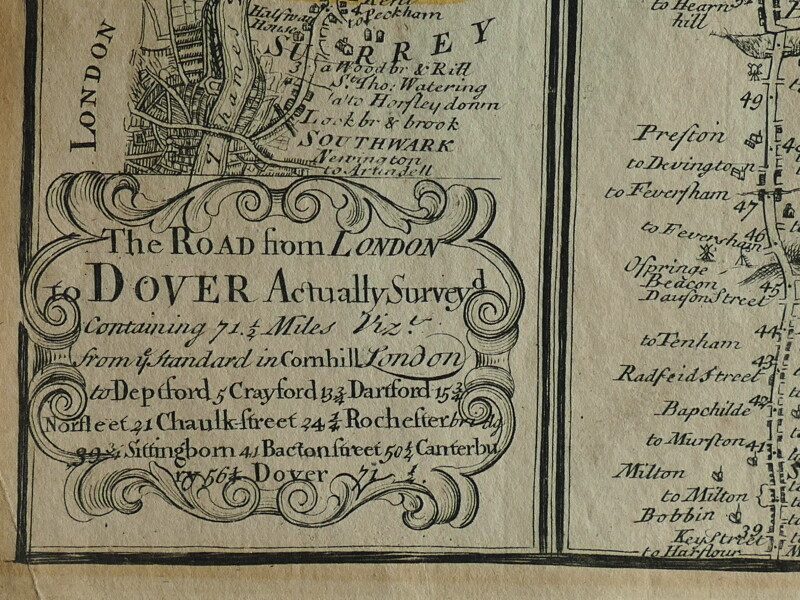 LONDON
Thames
Halfway
House
Kent
Peckham
SURREY
3 a Wood br & Rill
St. Tho: Watering
a to Horsleydown
Lock br & brook
SOUTHWARK
Newington
to Arundell
The ROAD from LONDON
to DOVER Actually Survey'd
Containing 71.½ Miles Vizt.
from ye Standard in Cornhill London
to Deptford 5 Crayford 13¾ Dartford 15¾
Norfleet 21 Chaulk-street 24¼ Rochester bridg
39¾ Sittingborn 41 Bacton street 50½ Canterbu
ry 56¼ Dover 71 ½.
to Hearn
hill
49
Preston
to Devington
to Feversham
47
to Feversham 46
Ospringe
Beacon
Dauson Street 45
44
to Tenham
43
Radfeid Street
42
Bapchilde
to Murston 41
Milton
to Milton
Bobbin
39
Key Street
to Harflour